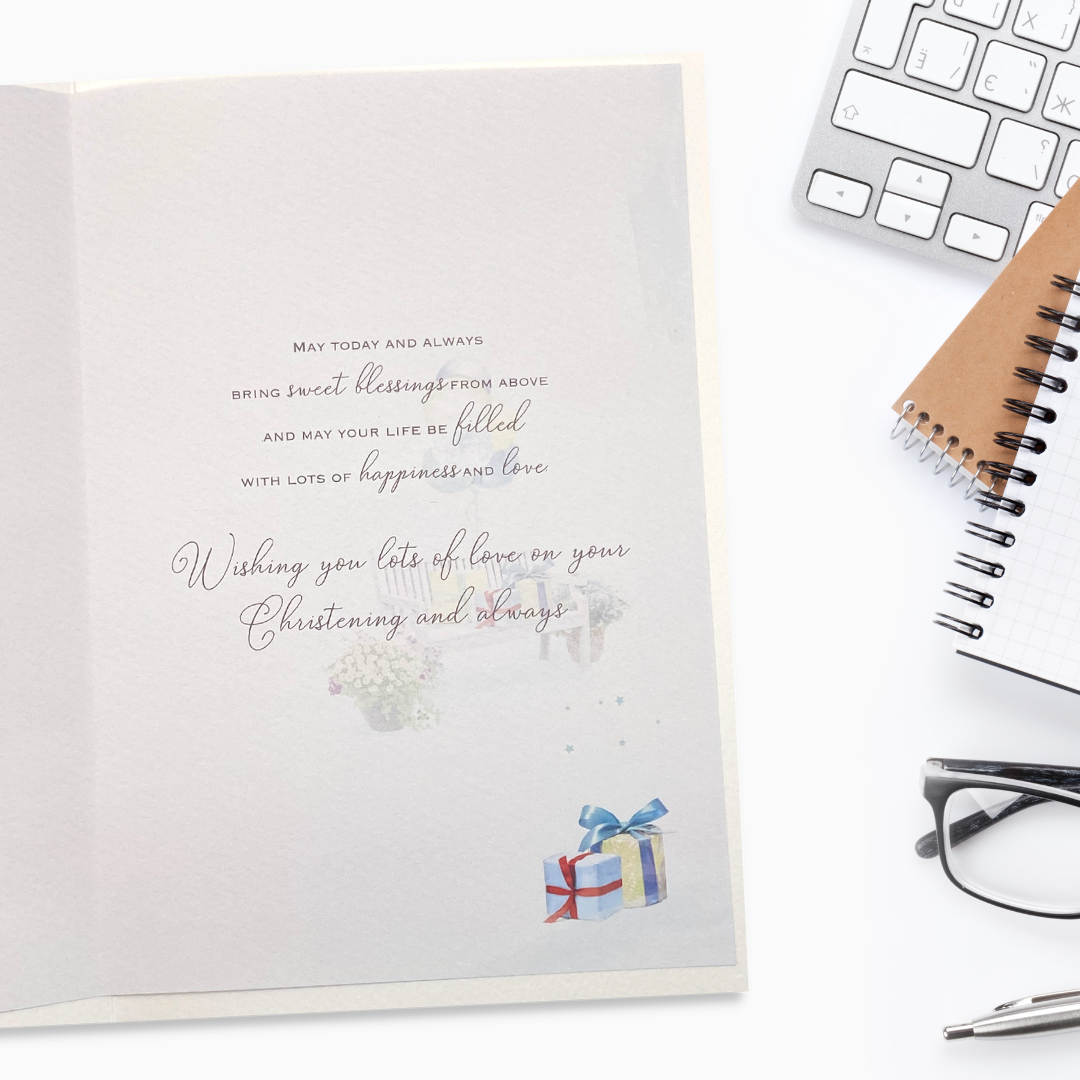 MAY TODAY AND ALWAYS
BRING sweet blessings FROM ABOVE
AND MAY YOUR LIFE BE filled
WITH LOTS OF happiness AND love.
Wishing you lots of love on your
Christening and always